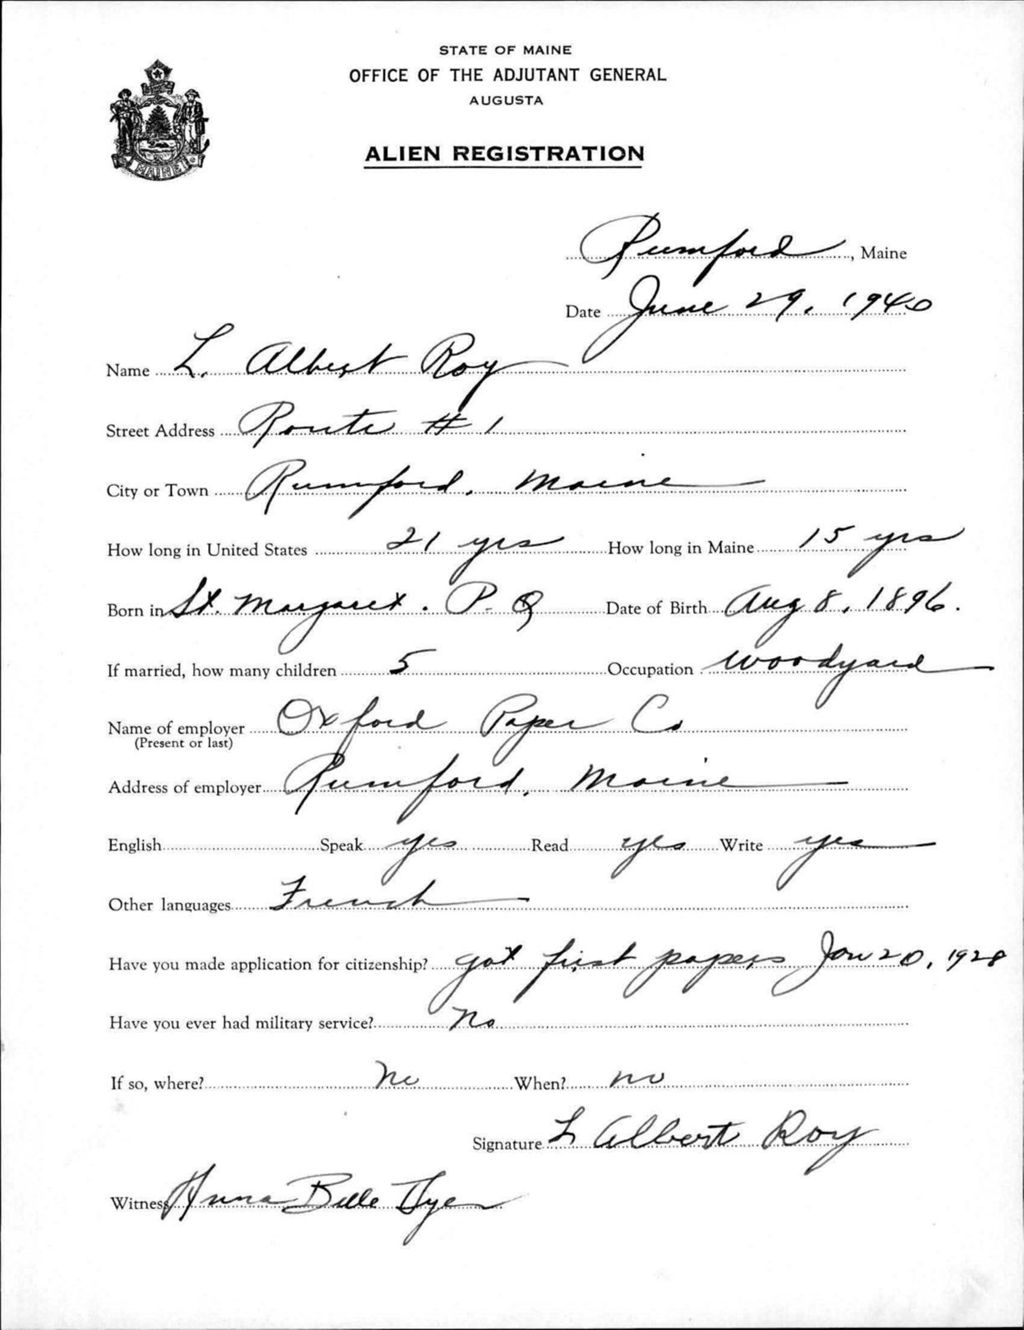 STATE OF MAINE
OFFICE OF THE ADJUTANT GENERAL
AUGUSTA
ALIEN REGISTRATION
MAINE
Rumford, Maine
Date June 29, 1940
Name L. Albert Roy
Street Address Route #1
City or Town Rumford, Maine
How long in United States 21 yrs How long in Maine 15 yrs
Born in St. Margaret. P.Q Date of Birth Aug 8, 1896.
If married, how many children 5 Occupation woodyard
Name of employer Oxford Paper Co
(Present or last)
Address of employer Rumford, Maine
English Speak yes Read yes Write yes
Other languages French
Have you made application for citizenship? got first papers Jan 20, 1928
Have you ever had military service? No
If so, where? No When? no
Signature L Albert Roy
Witness Anna Belle Dyer